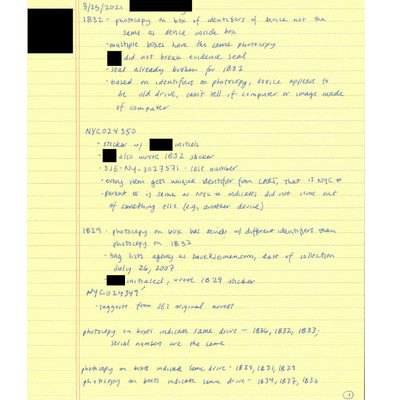 8/25/2021
1B32 - photocopy on box of identifiers of device not the
same as device inside box
- multiple boxes have the same photocopy
did not break evidence seal
- seal already broken for 1B32
- based on identifiers on photocopy, device appears to
be old drive, can't tell if computer or image made
of computer
NYC024350
- sticker w/ initials
- also wrote 1B32 sticker
- 31E-NY-3027571 - case number
- every item gets unique identifier from CART, that is NYC #
- parent # is same as NYC # indicates did not come out
of something else (e.g., another device)
1B29 - photocopy on box has serial w/ different identifiers than
photocopy on 1B32
- bag lists agency as , date of collection
July 26, 2007
- initialed, wrote 1B29 sticker
NYC024349
- suggests from JE's original arrest
photocopy on boxes indicate same drive - 1B36, 1B32, 1B33;
serial numbers are the same
photocopy on boxes indicate same drive - 1B31, 1B29
photocopy on boxes indicate same drive - 1B34, 1B37, 1B30
1